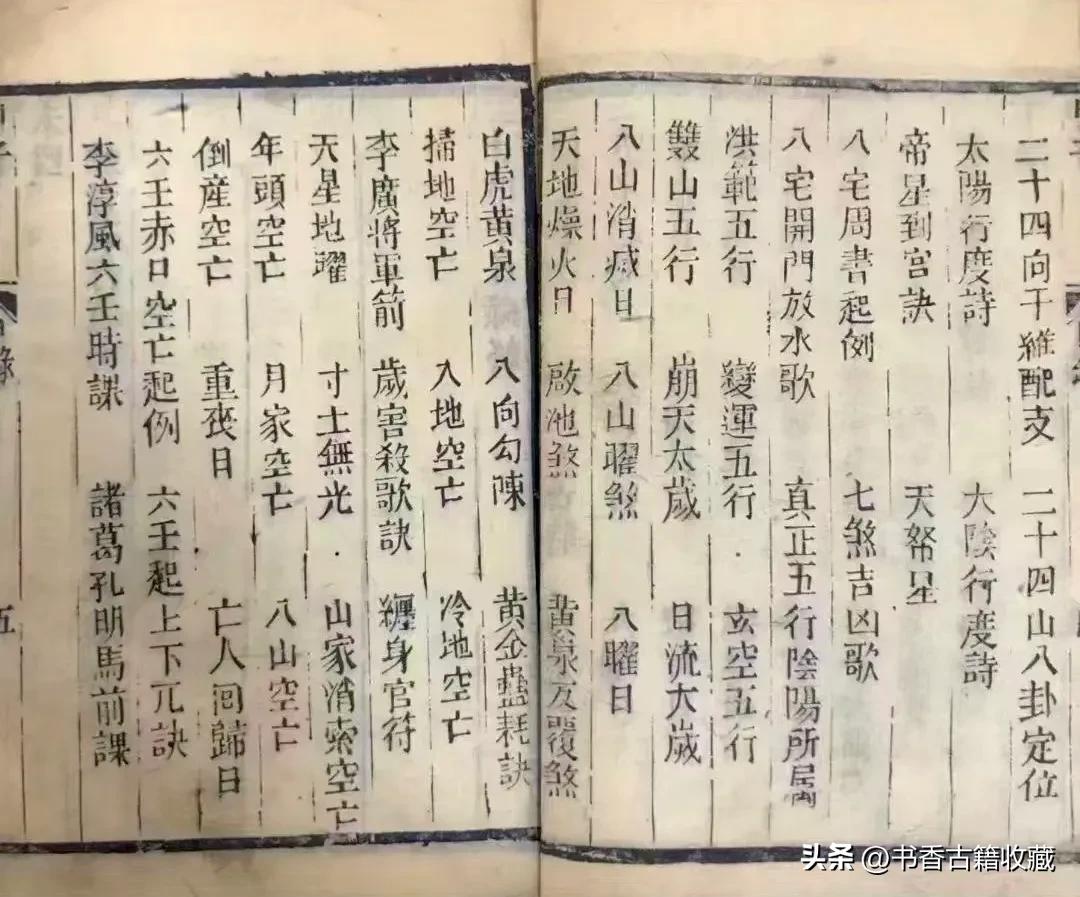 二十四向干維配支 二十四山八卦定位
太陽行度詩 太陰行度詩
帝星到宮訣 天帑星
八宅周書起例 七煞吉凶歌
八宅開門放水歌 真正五行陰陽所屬
洪範五行 變運五行 玄空五行
雙山五行 崩天太歲 日流太歲
八山消滅日 八山曜煞 八曜日
天地燥火日 啟池煞 黃泉反覆煞
白虎黃泉 八向勾陳 黃金蠱耗訣
掃地空亡 入地空亡 冷地空亡
李廣將軍箭 歲害殺歌訣 纏身官符
天星地曜 寸土無光 山家消索空亡
年頭空亡 月家空亡 八山空亡
倒産空亡 重喪日 亡人回歸日
六壬赤口空亡起例 六壬起上下兀訣
李淳風六壬時課 諸葛孔明馬前課
五
头条 @书香古籍收藏